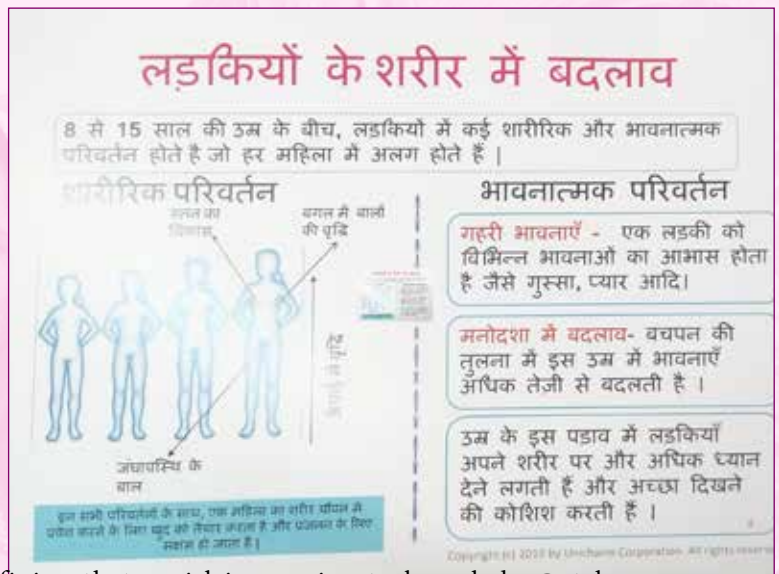 लड़कियों के शरीर में बदलाव
8 से 15 साल की उम्र के बीच, लडकियों में कई शारीरिक और भावनात्मक
परिवर्तन होते है जो हर महिला में अलग होते हैं |
शारीरिक परिवर्तन
स्तन का
विकास
बगल में बालों
की वृद्धि
जंघापस्थि के
बाल
इन सभी परिवर्तनों के साथ, एक महिला का शरीर यौवन में
प्रवेश करने के लिए खुद को तैयार करता है और प्रजनन के लिए
सक्षम हो जाता है |
भावनात्मक परिवर्तन
गहरी भावनाएँ - एक लडकी को
विभिन्न भावनाओं का आभास होता
है जैसे गुस्सा, प्यार आदि।
मनोदशा में बदलाव- बचपन की
तुलना में इस उम्र में भावनाएँ
अधिक तेज़ी से बदलती है ।
उम्र के इस पडाव में लडकियाँ
अपने शरीर पर और अधिक ध्यान
देने लगती हैं और अच्छा दिखने
की कोशिश करती हैं ।
Copyright (c) 2019 by Unicharm Corporation. All rights reserve